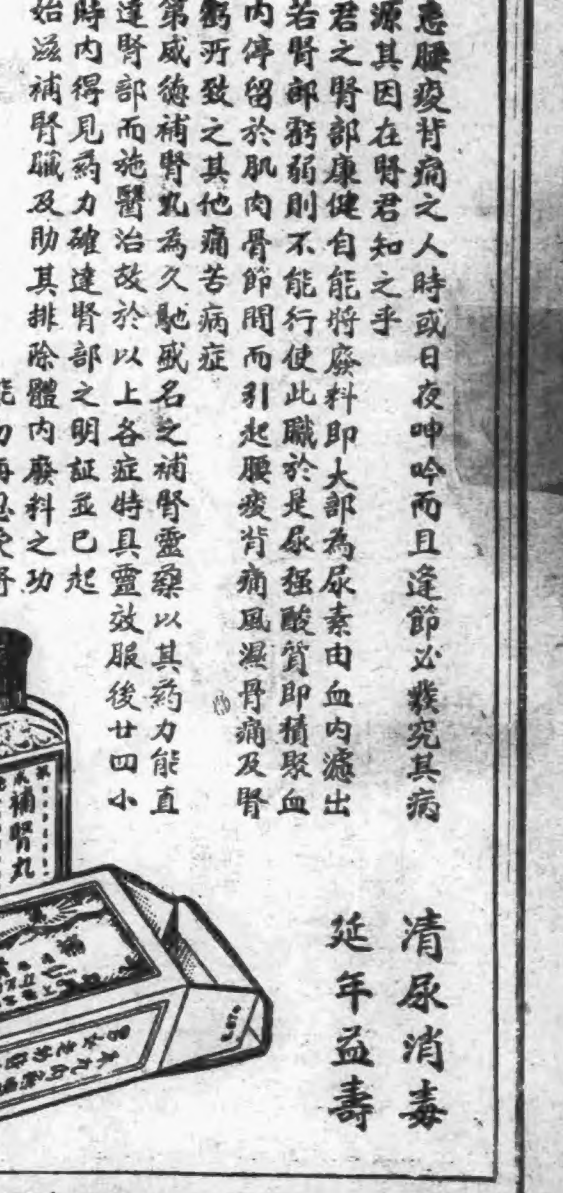 患腰痠背痛之人時或日夜呻吟而且逢節必發究其病
源其因在腎君知之乎
君之腎部康健自能將廢料即大部為尿素由血內濾出
若腎部虧弱則不能行使此職於是尿强酸質即積聚血
內停留於肌肉骨節間而引起腰痠背痛風濕骨痛及腎
虧所致之其他痛苦病症
第威德補腎丸為久馳盛名之補腎靈藥以其药力能直
達腎部而施醫治故於以上各症特具靈效服後廿四小
時内得見药力確達腎部之明証並已起
始滋補腎臟及助其排除體內廢料之功
清尿消毒
延年益壽
補腎丸